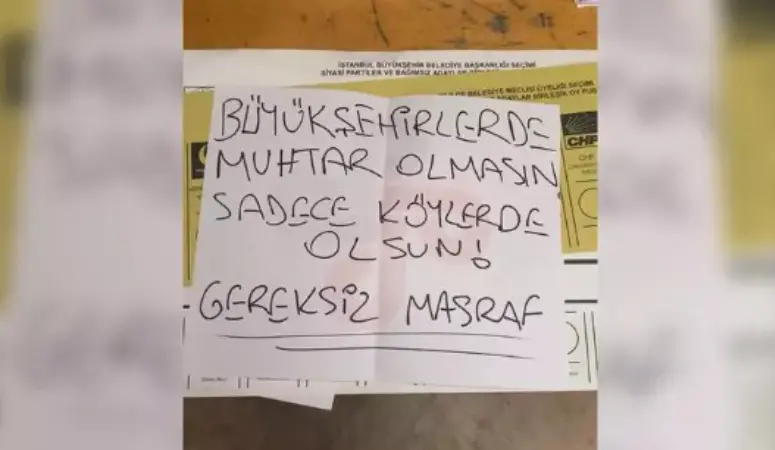 İSTANBUL BÜYÜKŞEHİR BELEDİYE BAŞKANLIĞI SEÇİMİ
SİYASİ PARTİLER VE BAĞIMSIZ ADAYLAR
BELEDİYE MECLİSİ ÜYELİĞİ SEÇİMİ
ADAYLAR BİRLEŞİK OY PUS
BÜYÜKŞEHİRLERDE
MUHTAR OLMASIN
SADECE KÖYLERDE
OLSUN!
GEREKSİZ MASRAF
CHP
CHP